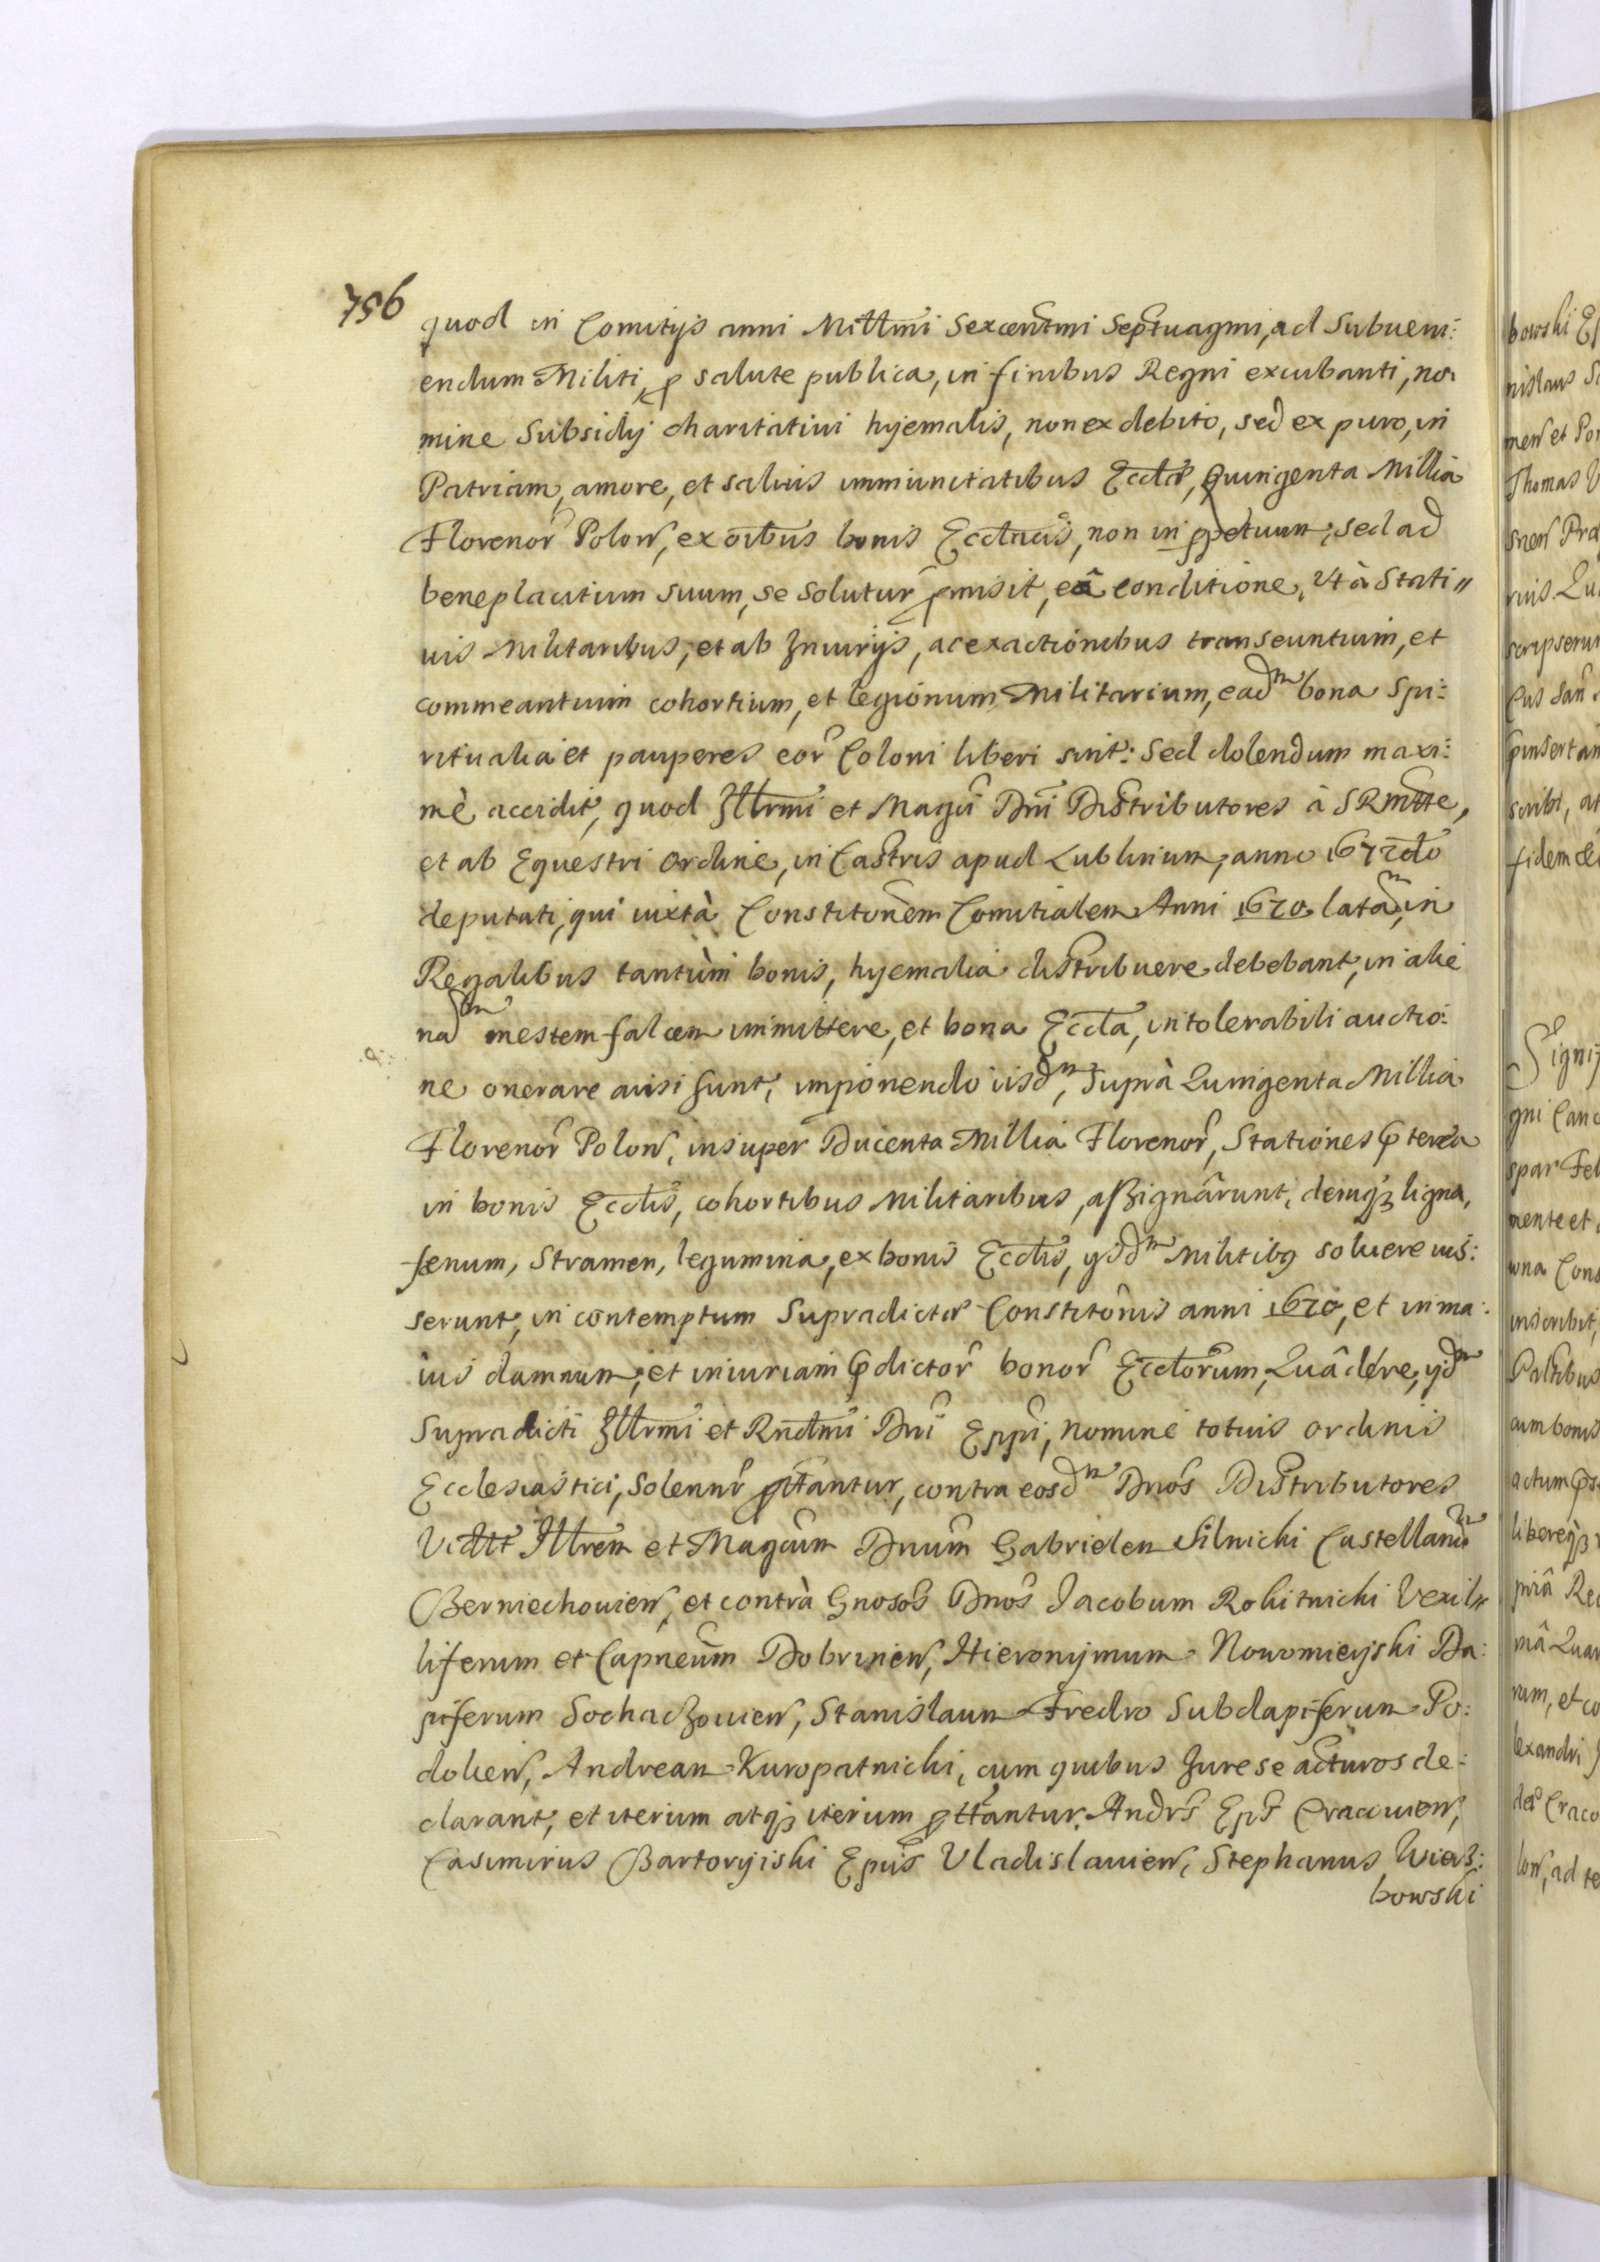 756
quod in Comitijs anni Millmi Sexcentmi Septuagmi, ad Subueni:
endum Militi, p salute publica, in finibus Regni excubanti, no:
mine Subsidij charitatiui hyemalis, non ex debito, sed ex puro, in
Patriam, amore, et saluis immunitatibus Ecclae, Quingenta Millia
Florenor Polon, ex oibus bonis Ecclncis, non in ppetuum, sed ad
beneplacitum suum, se solutur pmisit, eâ conditione, Vt à Stati
uis Militaribus, et ab Iniurijs, ac exactionibus transeuntium, et
commeantium cohortium, et legionum Militarium, eadm bona Spi:
ritualia et pauperes eor Coloni liberi sint: Sed dolendum maxi:
mè accidit, quod Illrmi et Magci Dni Distributores â SRmtte,
et ab Equestri Ordine, in Castris apud Lublinum, anno 1672do
deputati, qui iuxtà Constitonem Comitialem Anni 1670 latam, in
Regalibus tantùm bonis, hyemalia distribuere debebant, in alie
nam mestem falcem immittere, et bona Eccla, intolerabili auctio:
ne onerare ausi sunt, imponendo iisdm, Suprà Quingenta Millia
Florenor Polon, insuper Ducenta Millia Florenor, Stationes pterea
in bonis Ecclis, cohortibus Militaribus, assignârunt, deniq ligna,
fenum, Stramen, legumina, ex bonis Ecclis, ysdm Militibq soluere ius:
serunt, in contemptum Supradictae Constitonis anni 1670, et in ma:
ius damnum, et iniuriam pdictor bonor Ecclorum, Quâ dére, ydm
Supradicti Illrmi et Rndmi Dni Eppi, nomine totius ordinis
Ecclesiastici, Solennr pttantur, contra eosdm Dnos Distributores
Vidtt Illrem et Magcum Dnum Gabrielem Silnicki Castellanum
Berniechouien, et contrà Gnosos Dnos Jacobum Rokitnicki Vexil
liferum et Capneum Dobrinen, Hieronymum Nowomieyski Da:
piferum Sochaczouien, Stanislaum Fredro Subdapiferum Po:
dolien, Andream Kuropatnicki, cum quibus Iure se acturos de:
clarant, et iterum atq iterum pttantur. Andrs Eps Cracouien,
Casimirus Bartoryiski Epus Vladislauien, Stephanus Wierz:
bowski